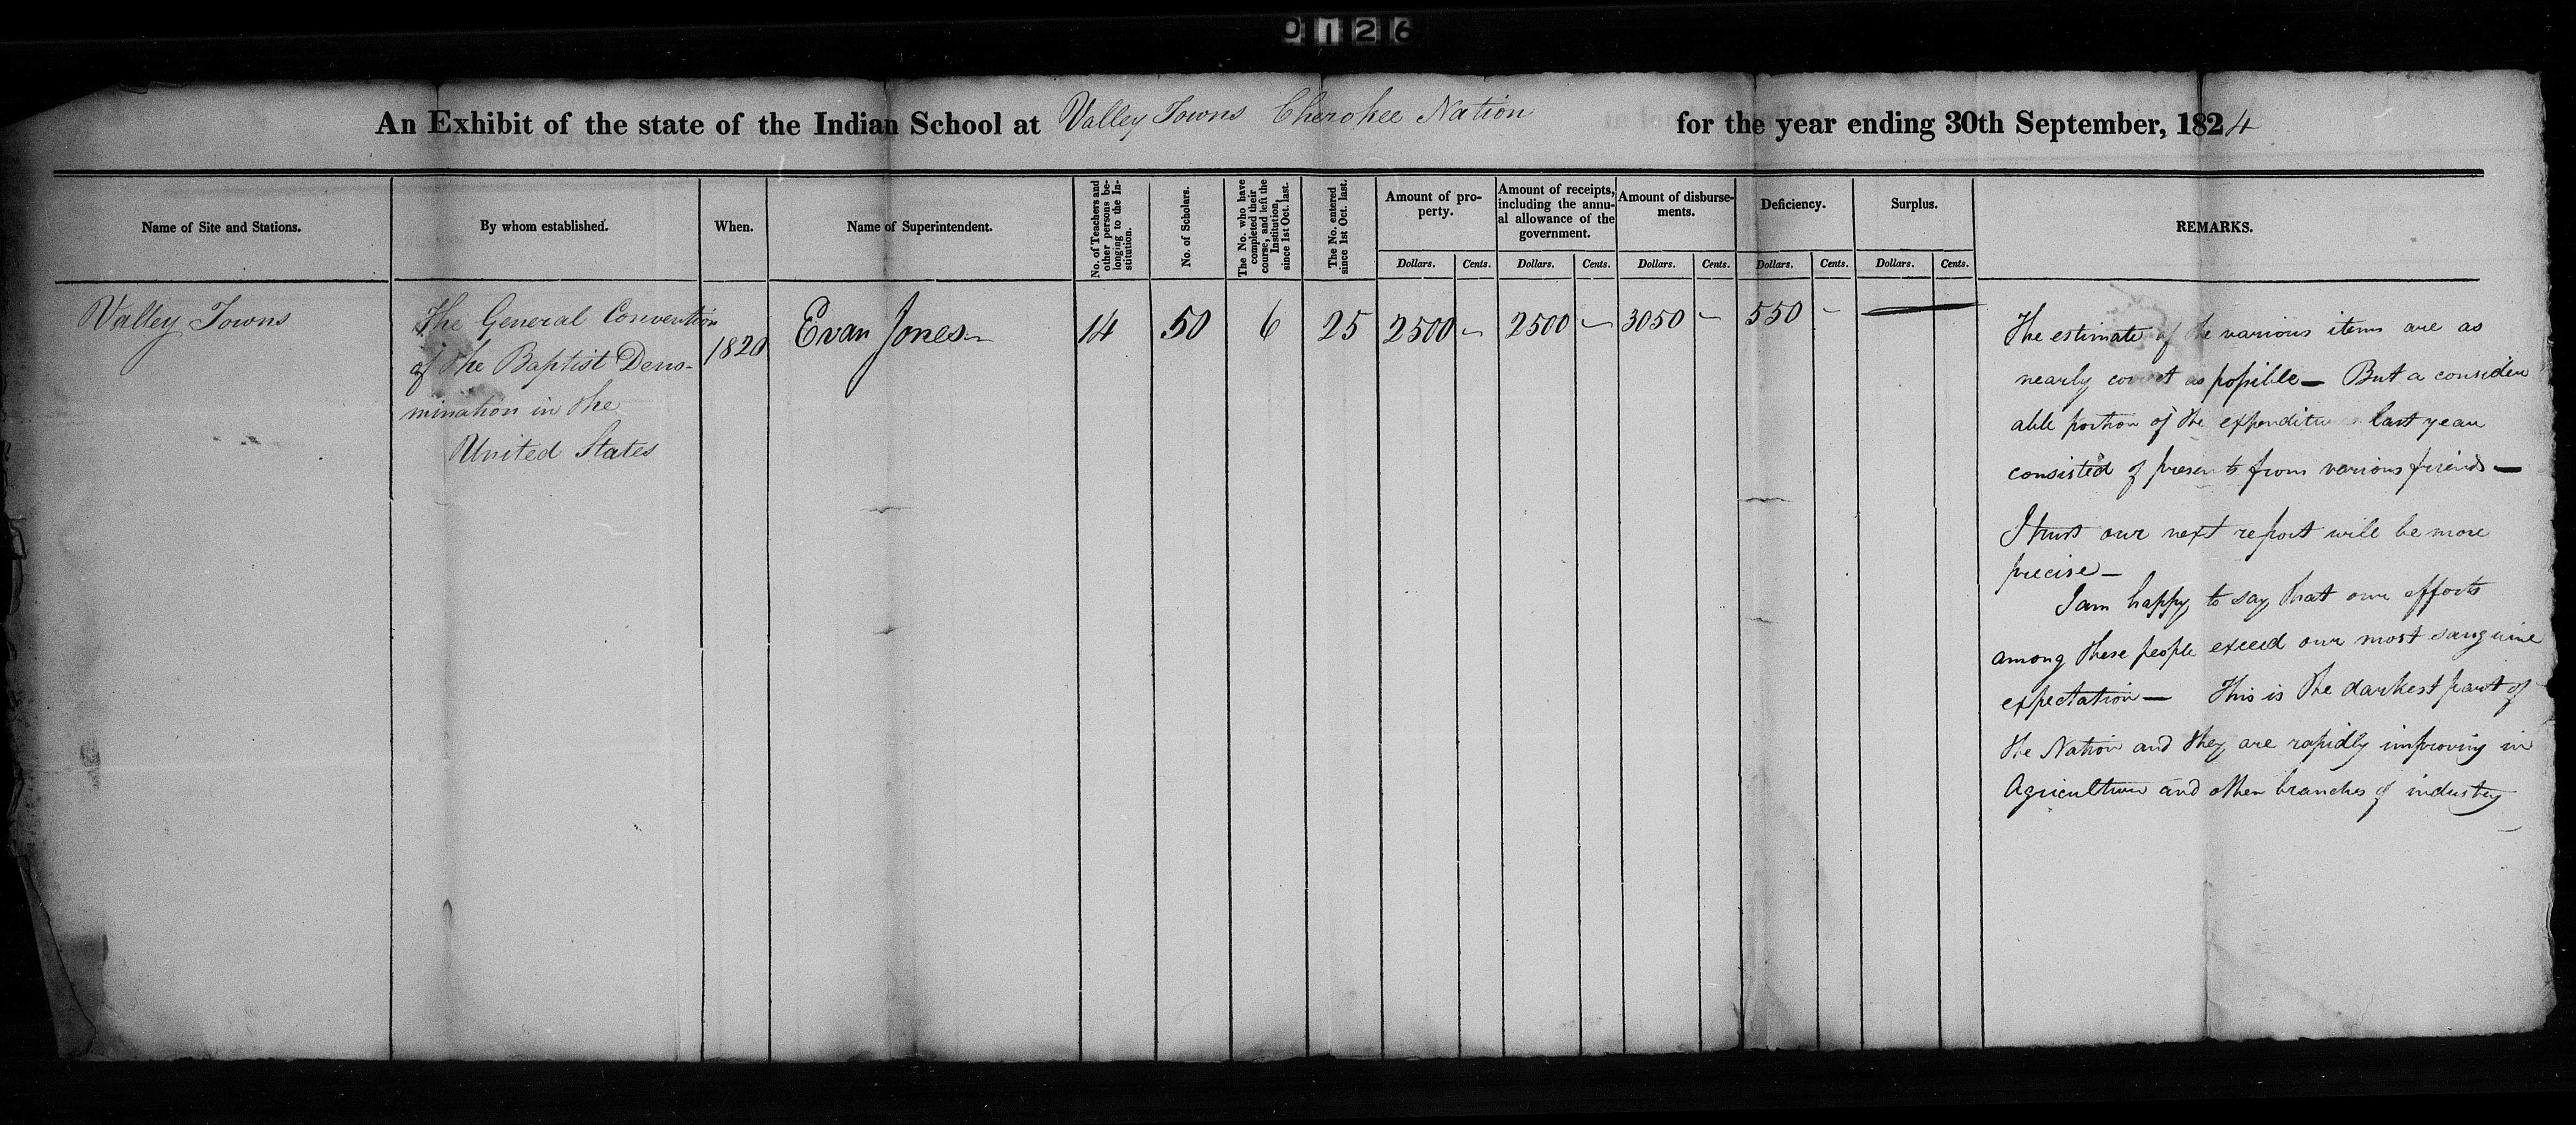 0126
An Exhibit of the state of the Indian School at Valley Towns Cherokee Nation for the year ending 30th September, 1824
Name of Site and Stations.
By whom established.
When.
Name of Superintendent.
No. of Teachers and
other persons be-
longing to the In-
stitution.
No. of Scholars.
The No. who have
completed their
course, and left the
Institution,
since 1st Oct. last.
The No. entered
since 1st Oct. last.
Amount of pro-
perty.
Amount of receipts,
including the annu-
al allowance of the
government.
Amount of disburse-
ments.
Deficiency.
Surplus.
REMARKS.
Dollars. Cents. Dollars. Cents. Dollars. Cents. Dollars. Cents. Dollars. Cents.
Valley Towns
The General Convention
of the Baptist Deno-
mination in the
United States
1820
Evan Jones
14 50 6 25 2500 – 2500 – 3050 – 550 – —
The estimate of the various items are as
nearly correct as possible — But a consider
able portion of the expenditure last year
consisted of presents from various friends —
I trust our next report will be more
precise —
I am happy to say that our efforts
among these people exceed our most sanguine
expectation — This is the darkest part of
the Nation and they are rapidly improving in
Agriculture and other branches of industry